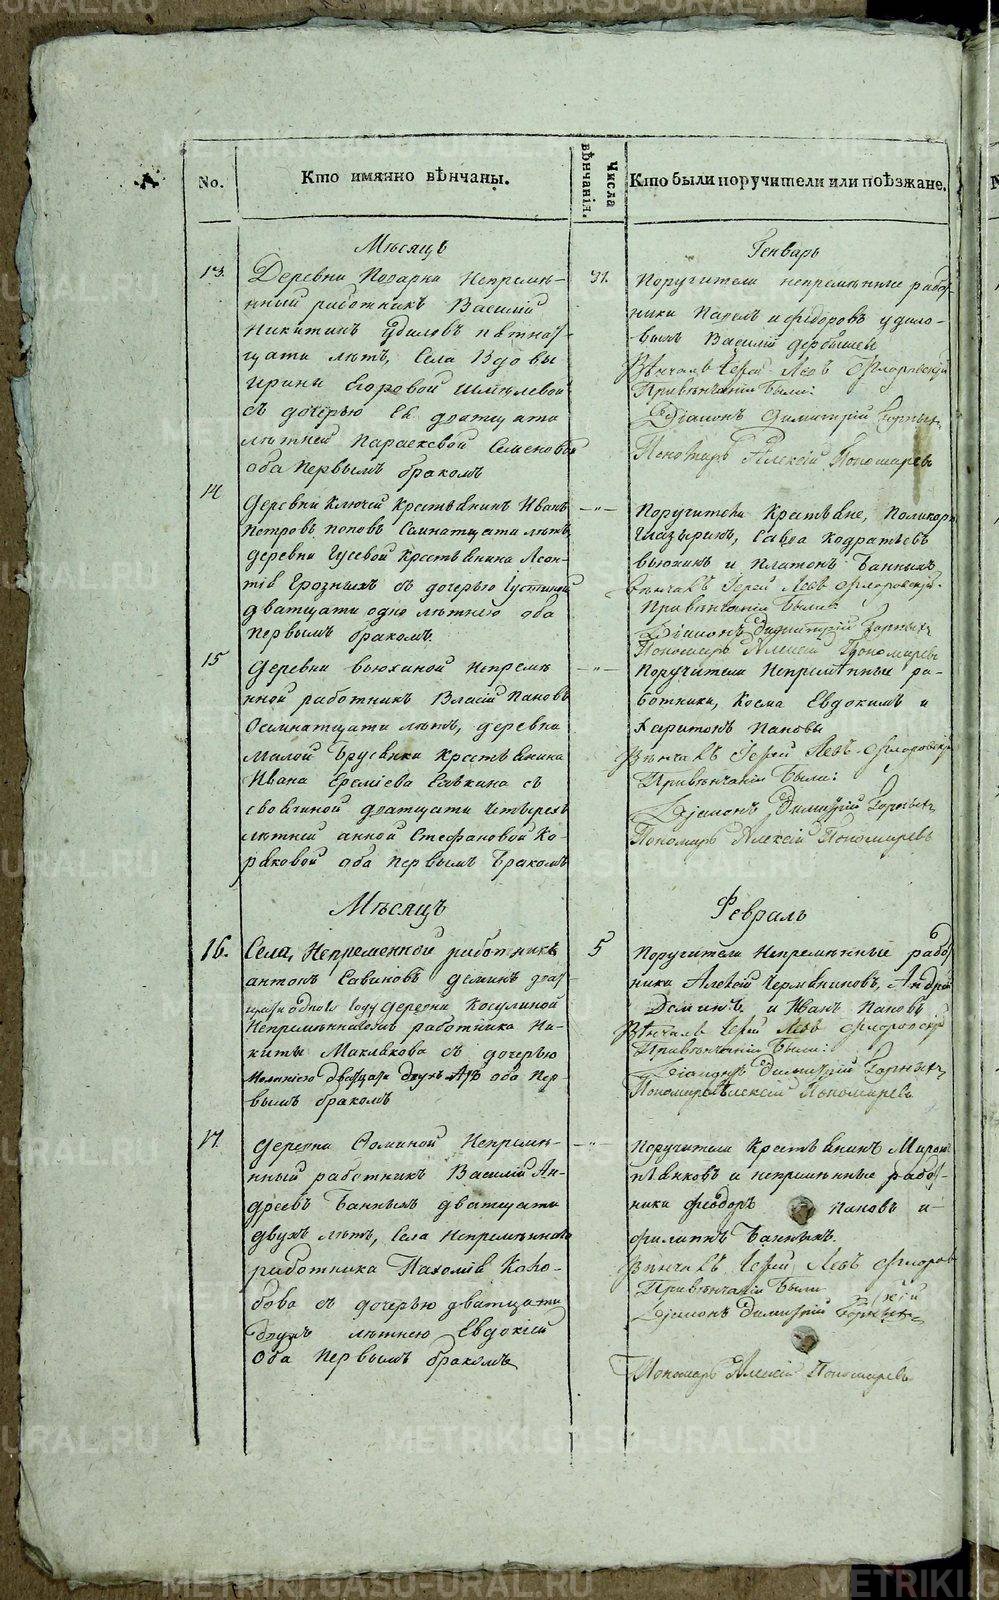 No.
Кто имянно вѣнчаны.
Числа вѣнчанія.
Кто были поручители или поѣзжане.
Мѣсяцъ
Генварь
13.
Деревни Непремѣ-
нный работникъ Василий
Никитинъ Удиловъ пятнат-
цати лѣтъ, Села Вдовы
Ирины Егоровой
съ дочерью Ея дватцати
лѣтней Параскевой Семеновой
оба первымъ бракомъ
31.
Поручители непремѣнные работ-
ники Павелъ и Федоровъ Удило-
выхъ Василий
Вѣнчалъ Iерей Левъ Флоровскiй
При вѣнчанiи были:
Дiаконъ Димитрiй Горныхъ
Пономарь Алексiй Пономаревъ
14
Деревни Ключей Крестьянинъ Иванъ
Петровъ Поповъ Семнатцати лѣтъ,
деревни Гусевой Крестьянина Леон-
тiя Ерозныхъ съ дочерью Iустиной
дватцати одно лѣтнею оба
первымъ бракомъ.
—„—
Поручители Крестьяне, Поликарпъ
Глазыринъ, Савва Кодратьевъ
Вьюхинъ и Платонъ Банныхъ
Вѣнчалъ Iерей Левъ Флоровскiй.
При вѣнчанiи были:
Дiаконъ Димитрiй Горныхъ
Пономарь Алексiй Пономаревъ
15
Деревни Вьюхиной Непремѣ
нной работникъ Власiй Пановъ
Осмнатцати лѣтъ, деревни
Малой Брусянки Крестьянина
Ивана Еремiева Савкина съ
своячиной дватцати четырехъ
лѣтней Анной Стефановой Ко-
раковой оба первымъ бракомъ
—„—
Поручители Непремѣнные ра-
ботники, Косма Евдокимъ и
Харитонъ Пановы
Вѣнчалъ Iерей Левъ Флоровскiй
При вѣнчанiи были:
Дiаконъ Димитрiй Горныхъ
Пономарь Алексiй Пономаревъ
Мѣсяцъ
Февраль
16.
Села, Непременной работникъ
Антонъ Савиновъ Деминъ дват-
цати одного году деревни Косулиной
Непремѣннаго работника Ни-
киты Маклакова съ дочерью
Меланiею дватцати двухъ лѣтъ оба пер-
вымъ бракомъ
5
Поручители Непремѣнные работ-
ники Алексiй Черемвниновъ, Андрей
Деминъ и Иванъ Пановъ
Вѣнчалъ Iерей Левъ Флоровскiй
При вѣнчанiи были:
Дiаконъ Димитрiй Горныхъ
Пономарь Алексiй Пономаревъ
17.
Деревни Фоминой Непремѣ-
нный работникъ Василiй Ан-
дреевъ Банныхъ дватцати
двухъ лѣтъ, Села Непремѣннаго
работника Пахомiя Коко-
бова съ дочерью дватцати
двухъ лѣтнею Евдокiей
Оба первымъ бракомъ
—„—
Поручители Крестьянинъ Миронъ
Пьянковъ и непремѣнные работ-
ники Феодоръ Пановъ и
Филиппъ Банныхъ.
Вѣнчалъ Iерей Левъ Флоров
скiй
При вѣнчанiи были
Дiаконъ Димитрiй Горныхъ
Пономарь Алексiй Пономаревъ
METRIKI.GASU-URAL.RU